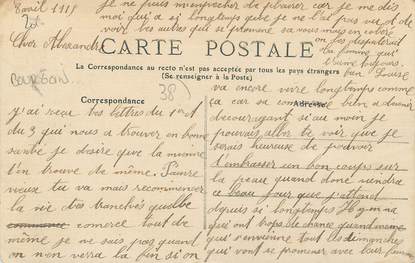 8 avril 1918
je ne puis m'empêcher de pleurer car je me dés
moi qui a si longtemps que je ne l'ai pas vu et de
voir des autres qui se promène sa vous mais en colère
on se disputerait
ta femme qui
t'aime toujours
Louise
Cher Alexandre
CARTE POSTALE
La Correspondance au recto n'est pas acceptée par tous les pays étrangers
(Se renseigner à la Poste)
BOURGOIN
38
Correspondance
Adresse
j'ai reçu tes lettres du 1er et
du 3 qui nous a trouver en bonne
santé je désire que la mienne
t'en trouve de même. Pauvre
vieux tu va mais recommencer
la vie des tranchés quel
commerce tout de
même je ne sais pas quand
on n'en verra la fin si on
va encore vivre longtemps comme
ça car sa commence a devenir
decouragant si au moin je
pouvais aller te voir que je
serais heureuse de pouvoir
d'embrasser un bon coups sur
la peau quand donc viendra
ce beau jour que j'attend
depuis si longtemps Il y en na
qui ont trops de chance quand même
qui s'envienne tout les dimanches
qui vont se promener avec leur femme